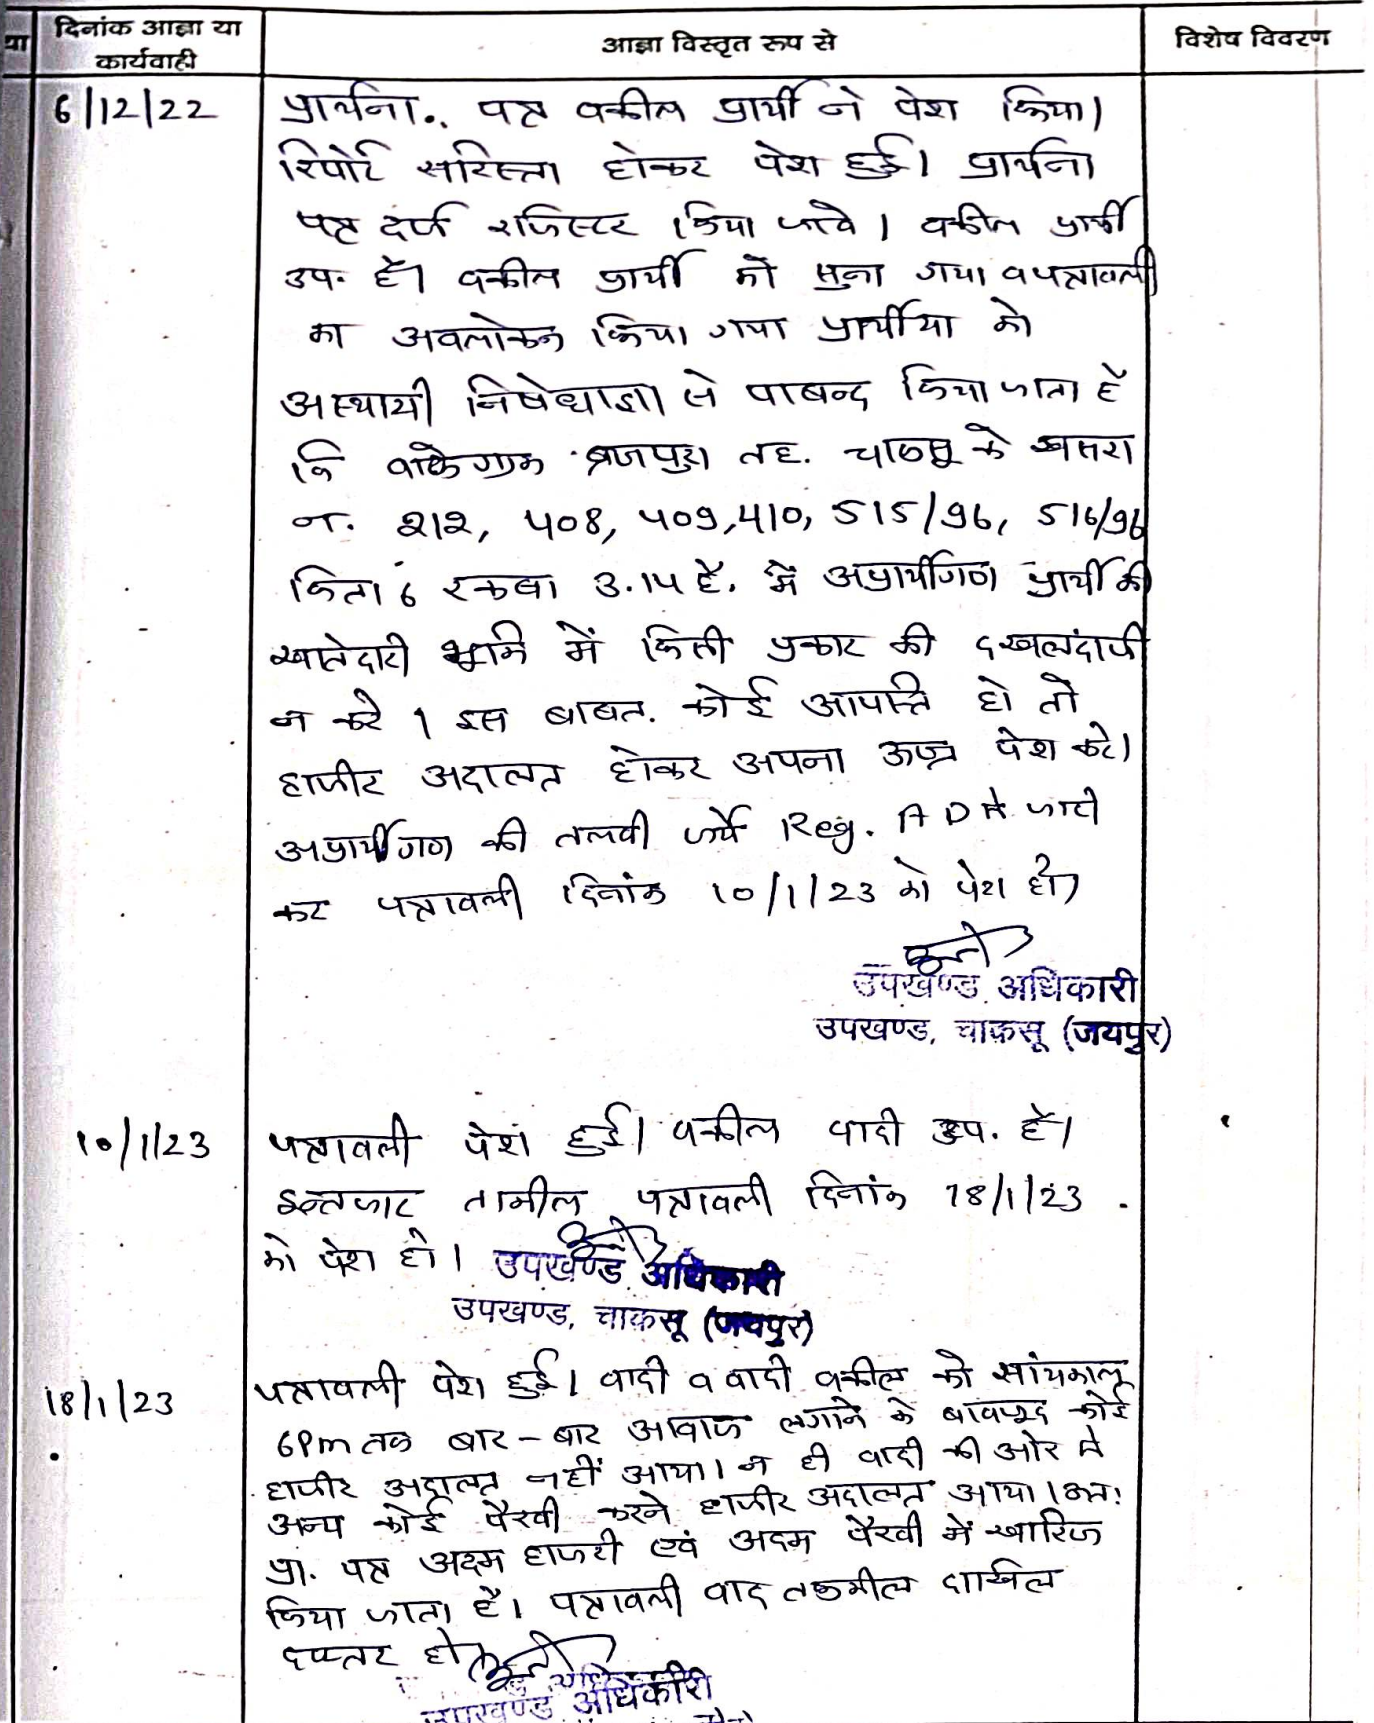 या
दिनांक आज्ञा या
कार्यवाही
आज्ञा विस्तृत रूप से
विशेष विवरण
6/12/22
प्रार्थना.. पत्र वकील प्रार्थी ने पेश किया।
रिपोर्ट सरिस्ता होकर पेश हुई। प्रार्थना
पत्र दर्ज रजिस्टर किया जावे। वकील प्रार्थी
उप. है। वकील प्रार्थी को सुना गया व पत्रावली
का अवलोकन किया गया प्रार्थीया को
अस्थायी निषेधाज्ञा से पाबन्द किया जाता है
कि वाके ग्राम ब्रजपुरा तह. चाकसू के खसरा
न. 212, 408, 409, 410, 515/96, 516/96
किता 6 रकबा 3.14 है. में अप्रार्थीगण प्रार्थी की
खातेदारी भूमि में किसी प्रकार की दखलंदाजी
न करे। इस बाबत. कोई आपत्ति हो तो
हाजीर अदालत होकर अपना ऊज्र पेश करे।
अप्रार्थीगण की तलवी जर्ये Reg. A D से जारी
कर पत्रावली दिनांक 10/1/23 को पेश हो
उपखण्ड अधिकारी
उपखण्ड, चाकसू (जयपुर)
10/1/23
पत्रावली पेश हुई। वकील वादी उप. है।
इन्तजार तामील पत्रावली दिनांक 18/1/23 .
को पेश हो।
उपखण्ड अधिकारी
उपखण्ड, चाकसू (जयपुर)
18/1/23
पत्रावली पेश हुई। वादी व वादी वकील को सांयकाल
6Pm तक बार-बार आवाज लगाने के बावजूद कोई
हाजीर अदालत नहीं आया। न ही वादी की ओर से
अन्य कोई पैरवी करने हाजीर अदालत आया। अतः
प्रा. पत्र अदम हाजरी एवं अदम पैरवी में खारिज
किया जाता है। पत्रावली वाद तकमील दाखिल
दफ्तर हो
उपखण्ड अधिकारी